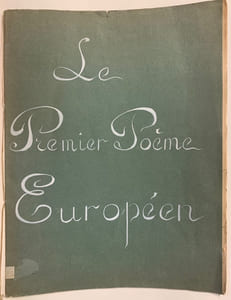 Le
Premier Poème
Européen